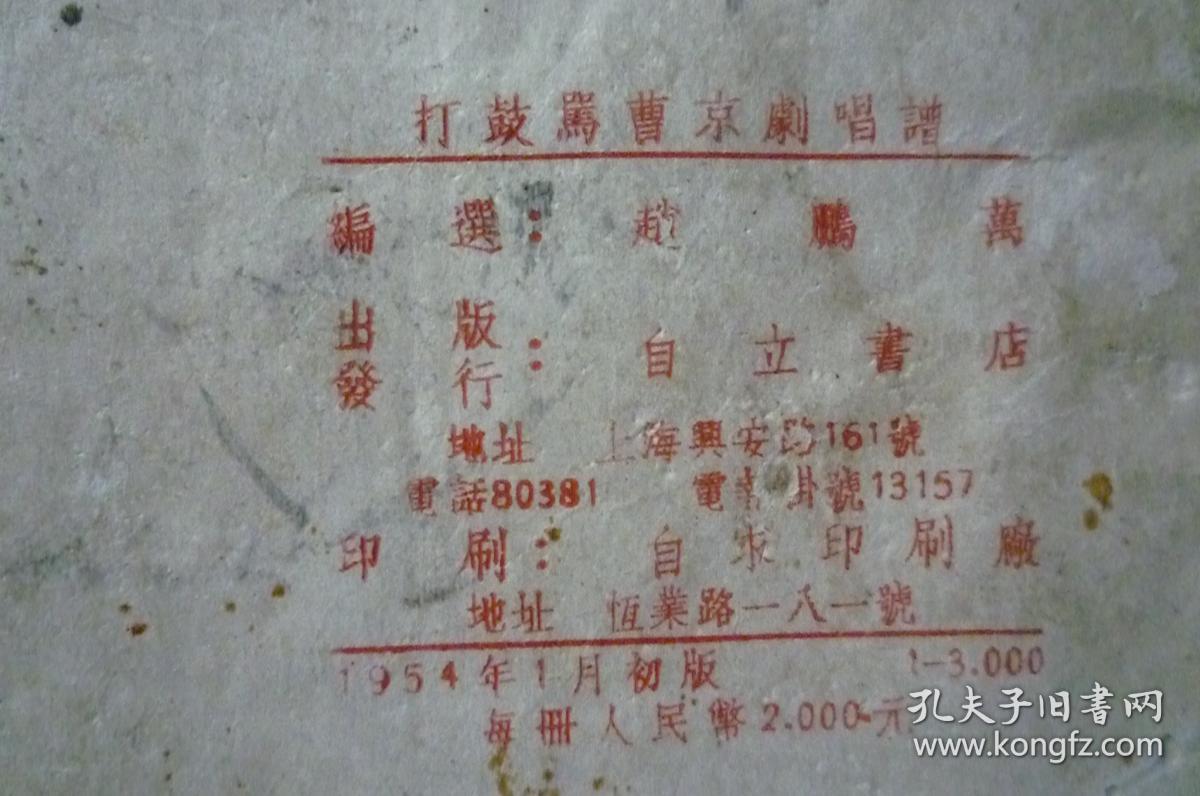 打鼓駡曹京劇唱譜
編選：趙鵬萬
出版
發行：自立書店
地址 上海興安路161號
電話80381 電報掛號13157
印刷：自求印刷廠
地址 恆業路一八一號
1954年1月初版 1-3.000
每冊人民幣2.000元
孔夫子旧书网
www.kongfz.com